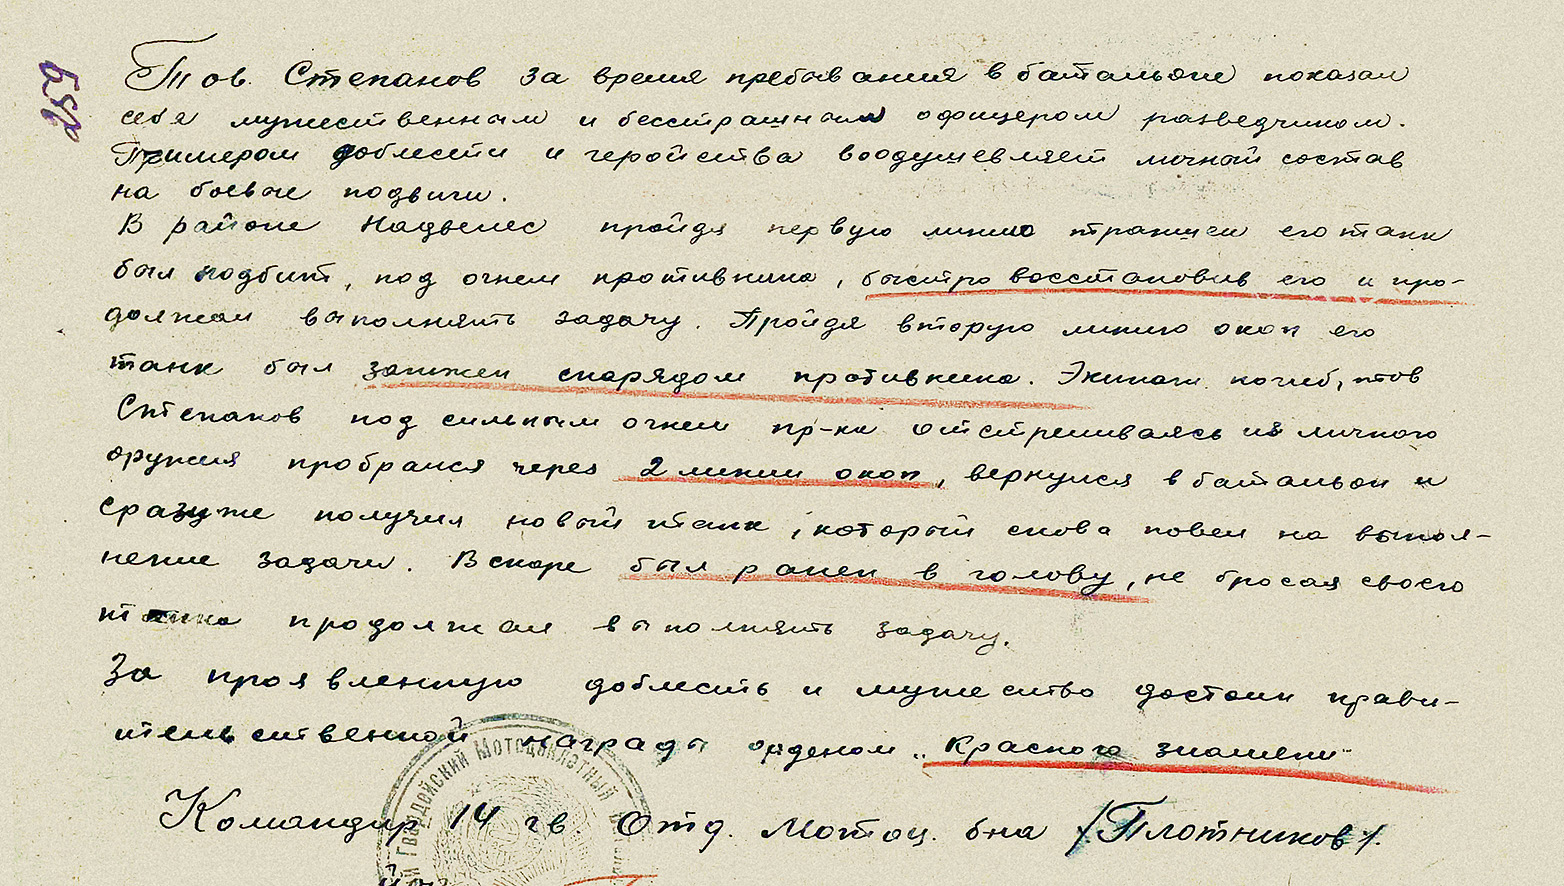 Тов. Степанов за время пребывания в батальоне показал
себя мужественным и бесстрашным офицером разведчиком.
Примером доблести и геройства воодушевляет личный состав
на боевые подвиги.
В районе Надьвелес пройдя первую линию траншеи его танк
был подбит, под огнем противника, быстро восстановив его и про-
должал выполнять задачу. Пройдя вторую линию окоп его
танк был зажжен снарядом противника. Экипаж погиб, тов
Степанов под сильным огнем пр-ка отстреливаясь из личного
оружия пробрался через 2 линии окоп, вернулся в батальон и
сразу же получил новый танк, который снова повел на выпол-
нение задачи. Вскоре был ранен в голову, не бросая своего
танка продолжал выполнять задачу.
За проявленную доблесть и мужество достоин прави-
тельственной награды орденом „Красного знамени"
Командир 14 гв Отд. Мотоц. б-на /Плотников/.
Гвардейский Мотоциклетный